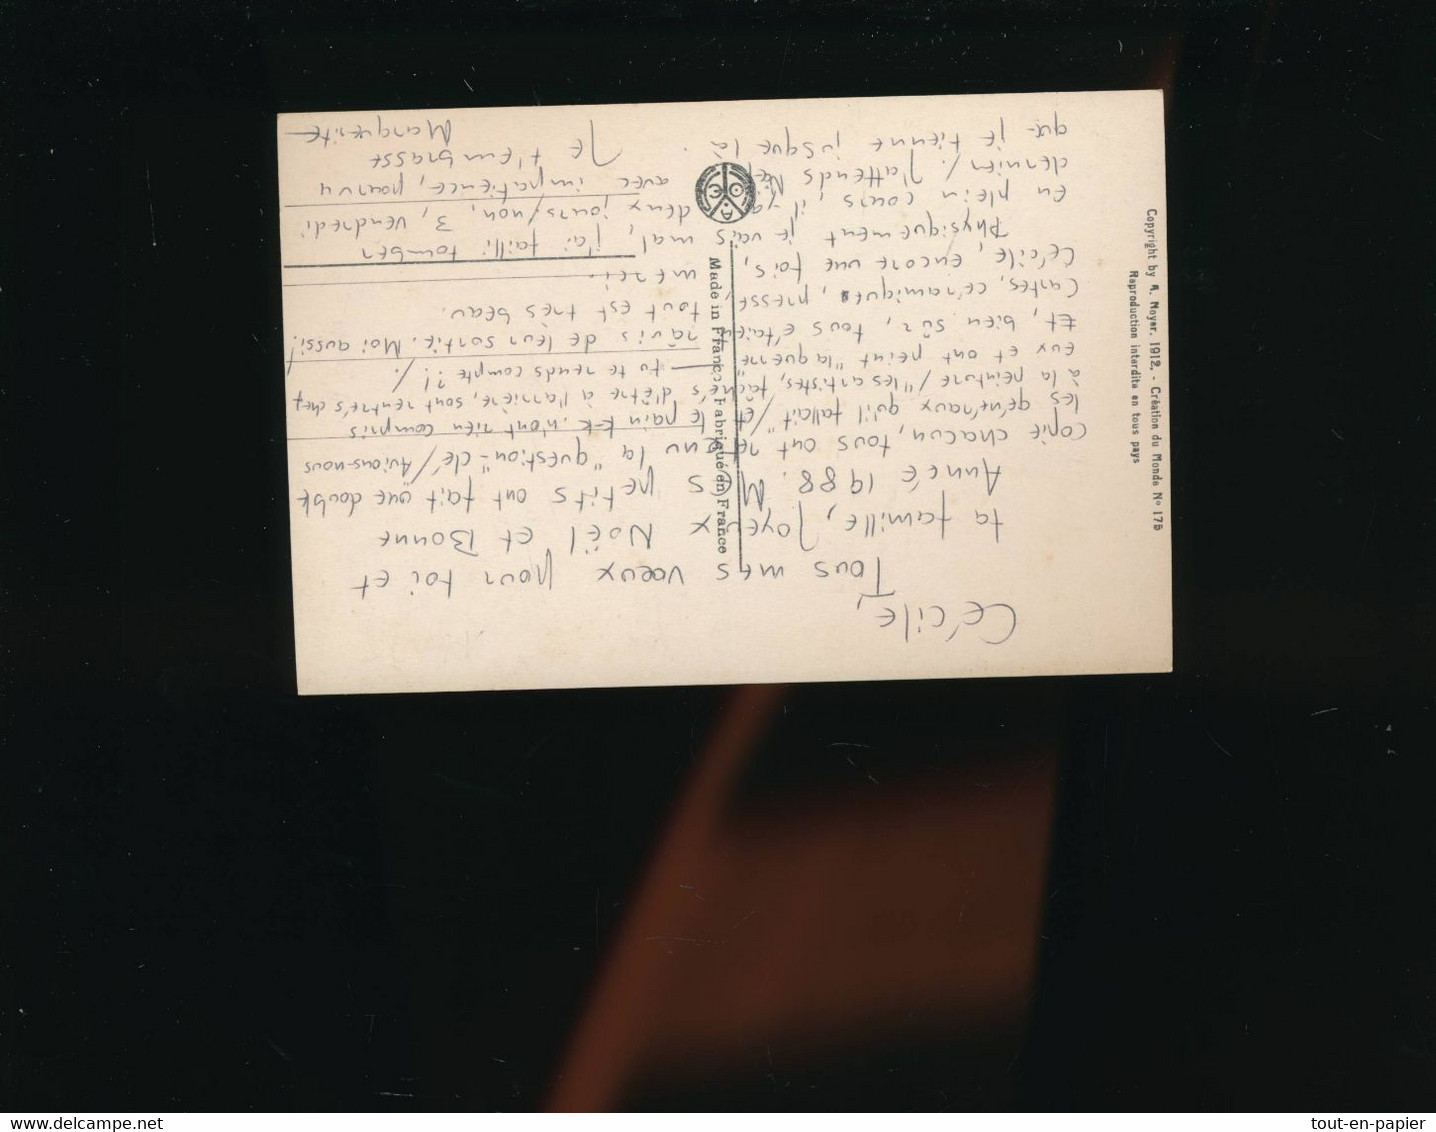 Cécile,
Tous mes vœux pour toi et
ta famille, Joyeux Noël et Bonne
Année 1988. Mes petits ont fait une double
copie chacun, tous ont retenu la "question"-clé / Avions-nous
les généraux qu'il fallait" / et le pain k-k. n'ont rien compris
à la peinture / "les artistes, fâchés d'être à l'arrière, sont rentrés chez
eux et ont peint "la guerre" — tu te rends compte ?! /.
Et, bien sûr, tous étaient ravis de leur sortie. Moi aussi!
Cartes, céramiques, presse, tout est très beau.
Cécile, encore une fois, merci.
Physiquement je vais mal, j'ai failli tomber
en plein cours, il y a deux jours / non, 3, vendredi
dernier /. J'attends Noël avec impatience, pourvu
que je tienne jusque là. Je t'embrasse
Marguerite
Made in France Fabriqué en France
Copyright by A. Noyer. 1912. - Création du Monde No 175
Reproduction interdite en tous pays
tout-en-papier